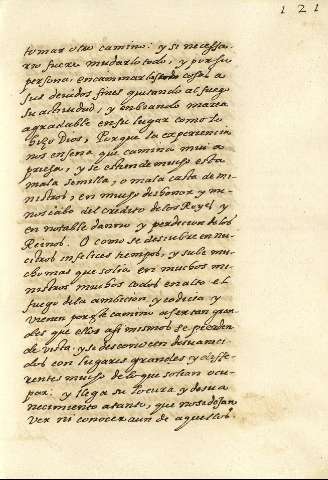 121
tomar otro camino: y si necessa-
rio fuere mudarlo todo, y por su
persona, encaminar las cosas a
sus devidos fines quitando al fuego
su actividad, y enbiando marea
agradable en su lugar como lo
hizo Dios, Porque la experiencia
nos enseña que camina mui a
priesa, y se estiende mucho esta
mala semilla, o mala casta de mi-
nistros, en mucho deshonor y me-
noscabo del credito de los Reyes y
en notable danno y perdicion de los
Reinos. O como se descubre en nu-
estros infelices tiempos, y sube mu-
cho mas que solia en muchos mi-
nistros muchos codos en alto el
fuego de la ambicion y codicia y
vienen por este camino a ser tan gran-
des que ellos asi mismos se pierden
de vista, y se desconocen desvaneci-
dos con lugares grandes y dife-
rentes mucho de lo que solian ocu-
par: y llega su locura y desva-
necimiento a tanto, que no se dejan
ver ni conocer aun de aquellos